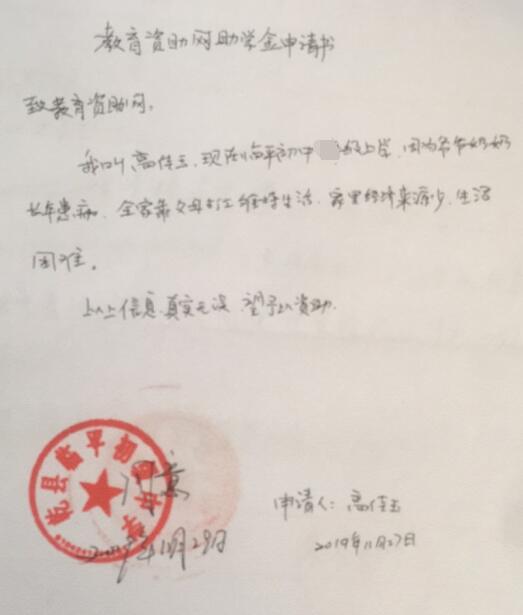 教育资助网助学金申请书
致教育资助网:
我叫高佳玉,现在临平初中 级上学,因为爷爷奶奶
长年患病,全家靠父母打工维持生活,家里经济来源少,生活
困难。
以上信息真实无误,望予以资助。
乾县临平初级中学
同意
2019年11月29日
申请人:高佳玉
2019年11月27日